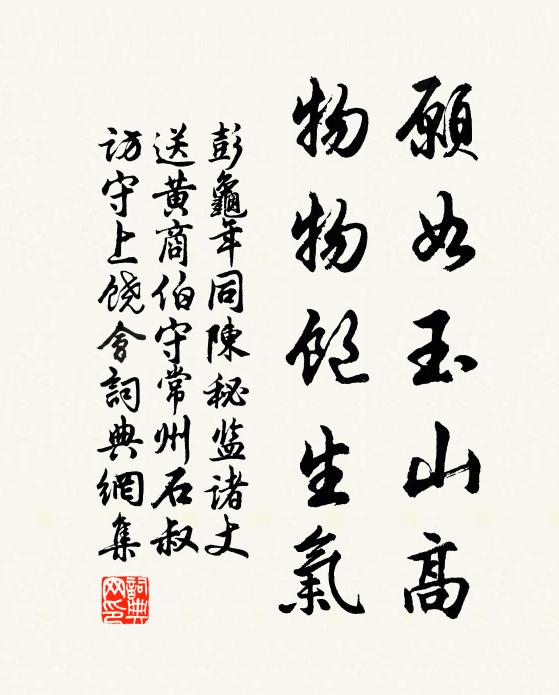 願如玉山高
物物飽生氣
彭龜年同陳秘监诸丈
送黄商伯守常州石叔
访守上饶會詞典網集
詞典网印